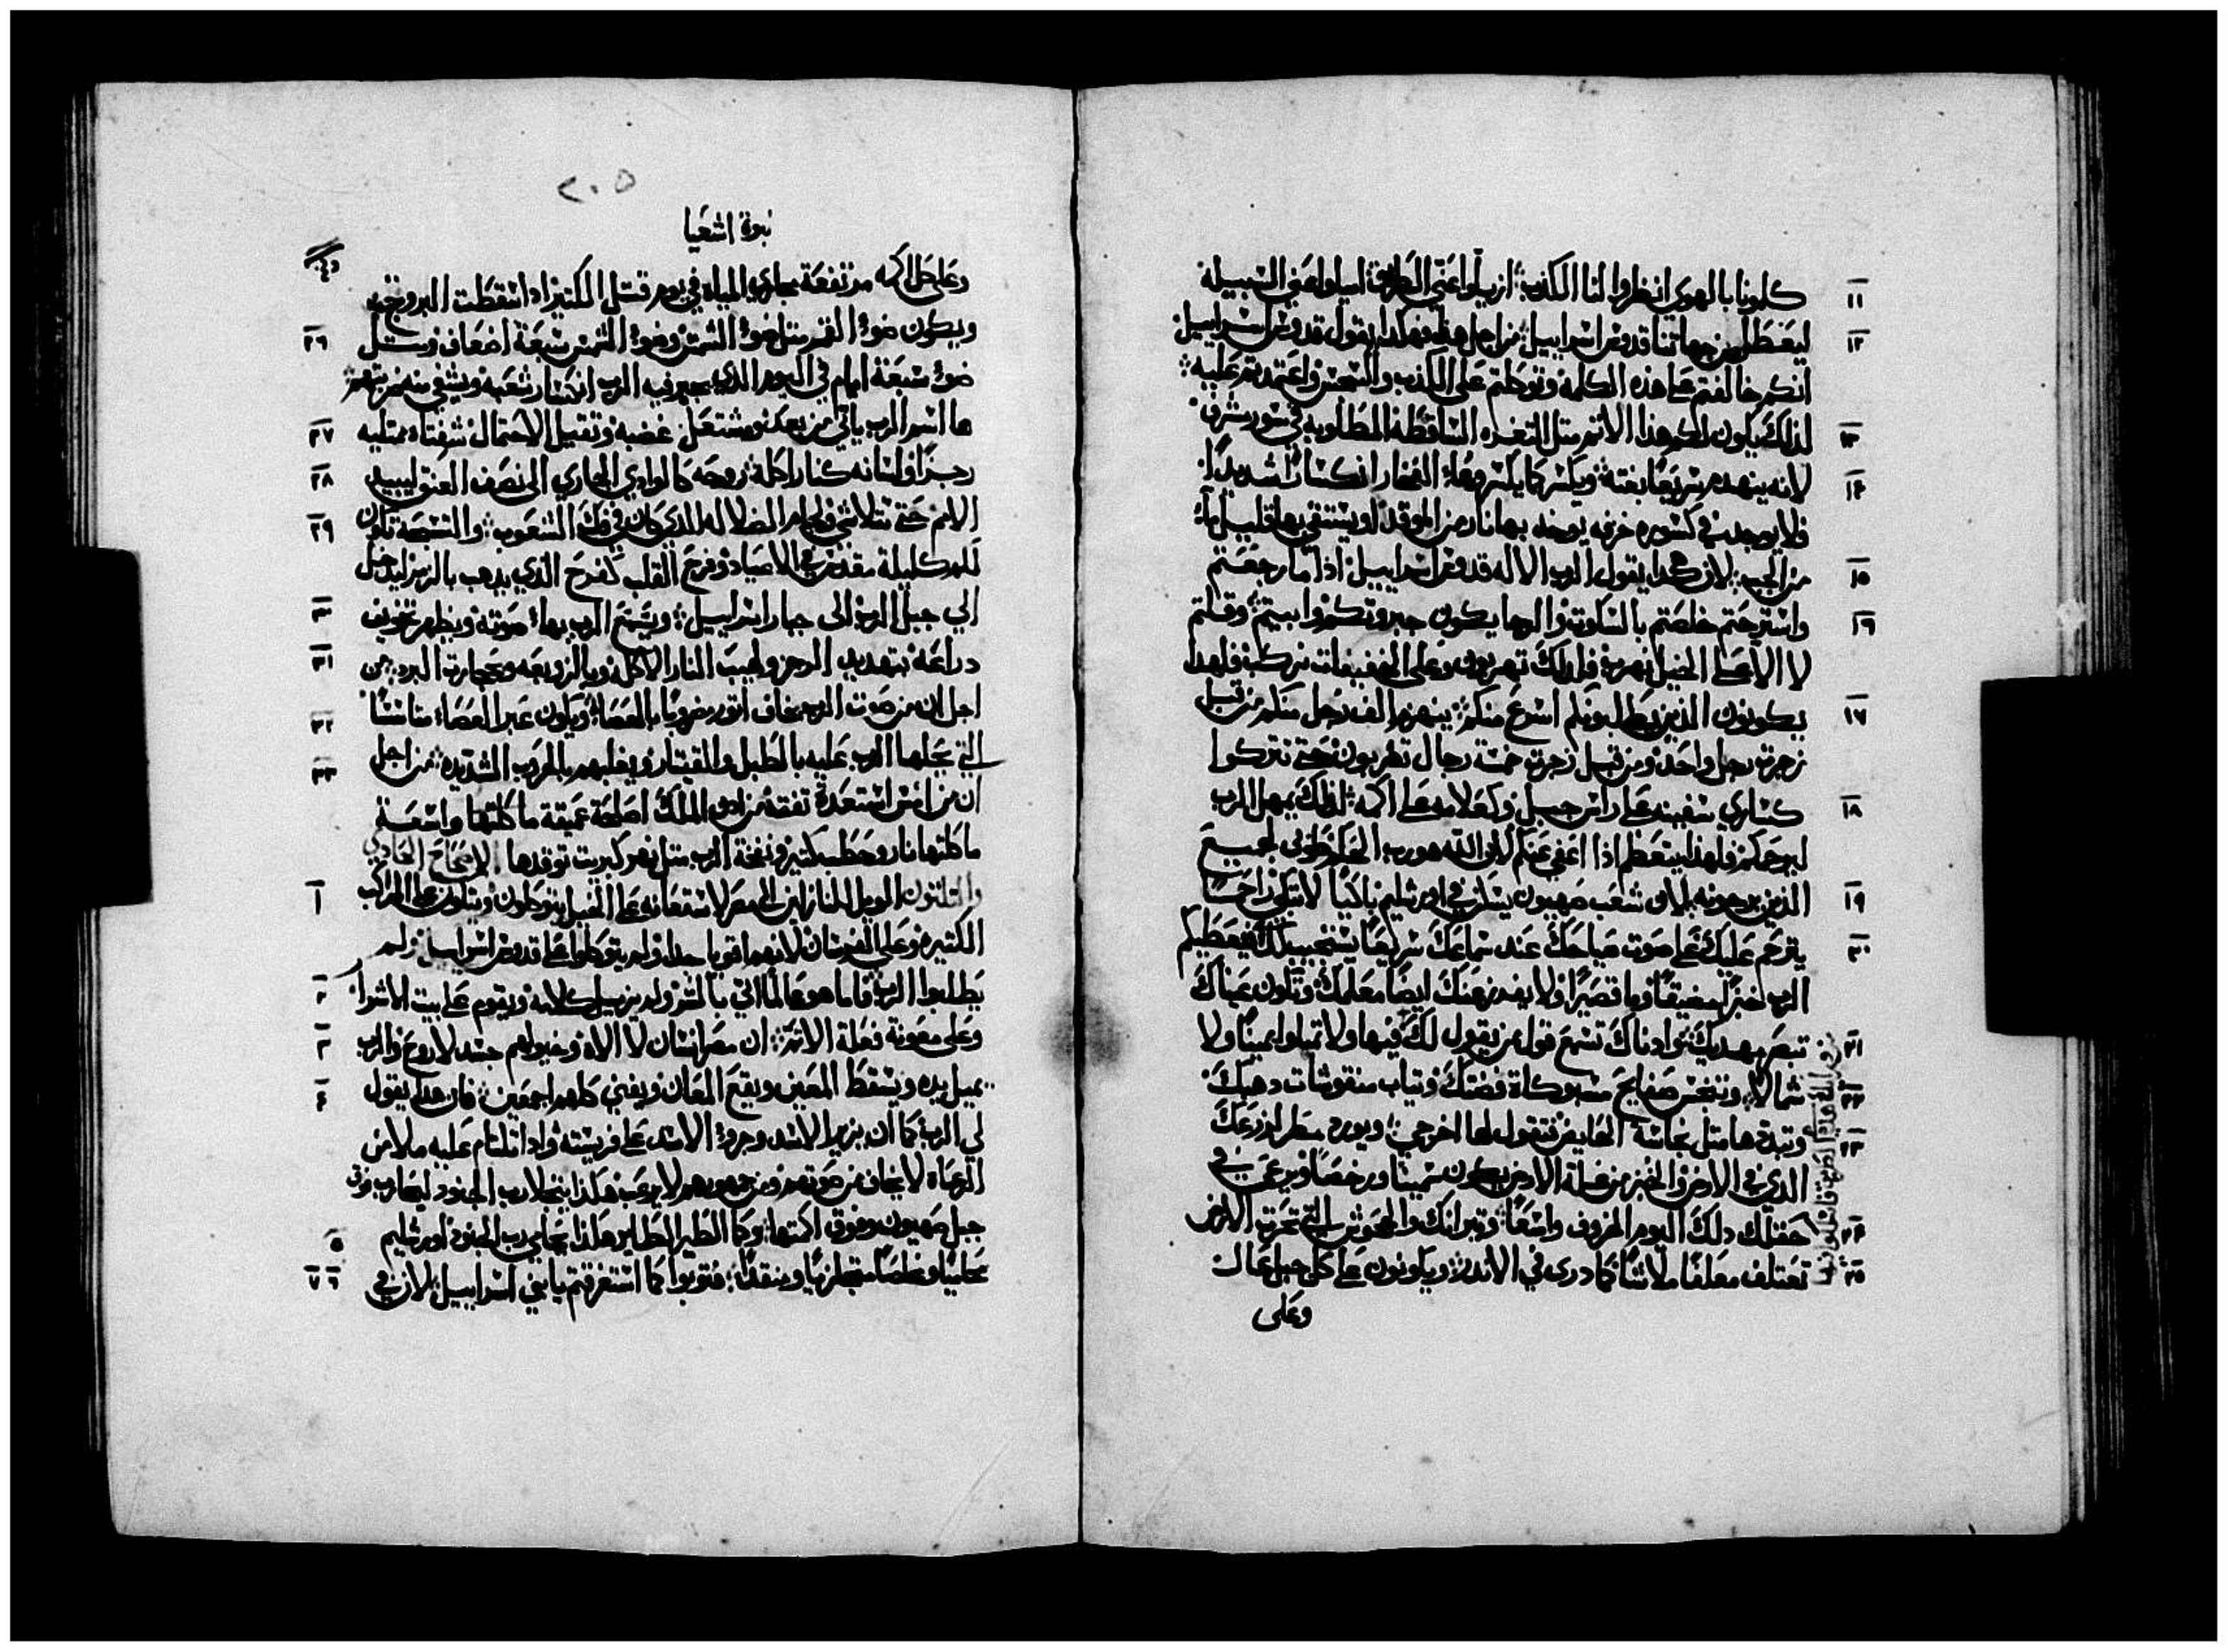 كلمونا بالهوي انظروا لنا الكذب ازيلوا عني الطريق اميلوا عني السبيلة
ليعطل من جهاتنا قدوس اسراييل من اجل هذا فهكذا يقول قدوس اسراييل
انكم خالفتم علي هذه الكلمة وتوكلتم علي الكذب والتعس واعتمدتم عليه
لذلك يكون لكم هذا الاتم متل التغره الساقطة المطلوبه في سور مشرف
لانه ينهدم سريعًا بغتة ويكسر كما يكسر وعاء الفخار انكسارًا شديدًا
فلا يوجد في كسوره خزفه يوخذ بها نار من الموقد او يستقي بها قليل ماء
من الجب لان هكذا يقول الرب الاله قدوس اسراييل اذا ما رجعتم
واسترحتم خلصتم بالسكوت والرجا يكون جبروتكم وابيتم وقلتم
لا الا علي الخيل نهرب فلذلك تهربون وعلي الخفيفات نركب فلهذا
يكونون الذين يطلبونكم اسرع منكم ينهزم الف رجل منكم من قبل
زجرة رجل واحد ومن قبل زجرة خمسة رجال تهربون حتي تتركوا
كساري سفينه علي راس جبل وكعلامه علي اكمه لذلك يمهل الرب
ليرحمكم فلهذا يتعظم اذا اعفي عنكم لان الله هو رب الحكم طوبي لجميع
الذين يرجونه لان شعب صهيون يسكن في اورشليم باكيًا لا تبكي
يترحم عليك علي صوت صياحك عند سماعك سريعًا يستجيب لك فيعطيكم
الرب خبزًا مضيقًا وما قصيرًا ولا يعد يزهنك ايضًا معلمك وتكون عيناك
تبصر مهديك واذناك تسمع قول من يقول لك فيها ولا تميلوا يمينًا ولا
شمالا وتنجس صفايح مسبوكاة فضتك وتياب منقوشات دهبك
وتبدها متل نجاسة الحايض فتقول لها اخرجي ويورد مطر لزرعك
الذي في الارض والخبز من غلة الارض يكون سمينًا ورخصًا ويرعي في
حقلك ذلك اليوم الخروف واسعًا وتيرانك والجحوش التي تحرت الارض
تعتلف معلفًا ملاتًا كما دري في الاندر ويكونون علي كل جبل عال
وعلى
١١
١٢
١٣
١٤
١٥
١٦
١٧
١٨
١٩
٢٠
٢١
٢٢
٢٣
٢٤
٢٥
٢٠٥
نبوة اشعيا
وعلي كل اكمه مرتفعة مجاري المياه في يوم قتل الكتير اذا سقطت البروج
ويكون ضوء القمر متل ضوء الشمس وضوء الشمس سبعة اضعاف متل
ضوء سبعة ايام في اليوم الذي يجبر فيه الرب انكسار شعبه ويشفي
ها اسم الرب ياتي من بعيد مشتعل غضبه وتقيل الاحتمال شفتاه ممتليه
رجزًا ولسانه كنار اكلة روحه كالوادي الجاري الي نصف العنق ليبيد
الامم حتي تتلاشي ولجام الضلاله الذي كان في فك الشعوب والتسبحة تكون
لكم كليلة مقدس الاعياد وفرح القلب كفرح الذي يذهب بالزمر ليدخل
الي جبل الرب الى جبار اسراييل ويسمع الرب بهاء صوته ويظهر تخويف
دراعه بتهديد الرجز ولهيب النار الاكله وبالزوبعه وبحجارة البرد من
اجل ان من صوت الرب يخاف اتور مضروبًا بالعصاة ويكون عبر العصاء متاسسًا
التي يحلها الرب عليه بالطبل والقيتار ويغلبهم بالحرب الشديده من اجل
ان من امس استعدة تفته من لدن الملك اصلحة عميقة ماكلتها واسعة
ماكلتها نار وحطب كتير ونفخة الرب متل نهر كبريت توقدها الاصحاح الحادي
والتلتون الويل للنازلين الي مصر لاستعانه علي الخيل يتوكلون ويتكلون علي المراكب
الكتيره وعلي الفرسان لانهم اقويا جدا ولم يتوكلوا علي قدوس اسراييل ولم
يطلبوا الرب فاما هو عالمًا اتي بالشر ولم يزيل كلامه ويقوم علي بيت الاشرار
وعلى معونة فعلة الاتم ان مصر انسان لا الاه وخيولهم جسد لا روح والرب
يميل يده ويسقط المعين ويقع المعان ويفني كلهم اجمعين فان هكذا يقول
لي الرب كما ان يزير الاسد وجرو الاسد علي فريسته واذا تلتام عليه ملا من
الرعاه لا يخاف من صوتهم ومن جمهورهم لا يرعب هكذا ينجلا رب الجنود ليحارب فوق
جبل صهيون وفوق اكمتها وكما الطير الطاير هكذا يحامي رب الجنود اورشليم
محاميًا ومخلصًا متجاوزًا ومنقدًا فتوبوا كما استغرقتم يا بني اسراييل لان في
٢٦
٢٧
٢٨
٢٩
٣٠
٣١
٣٢
٣٣
١
٢
٣
٤
٥
٦ ٧